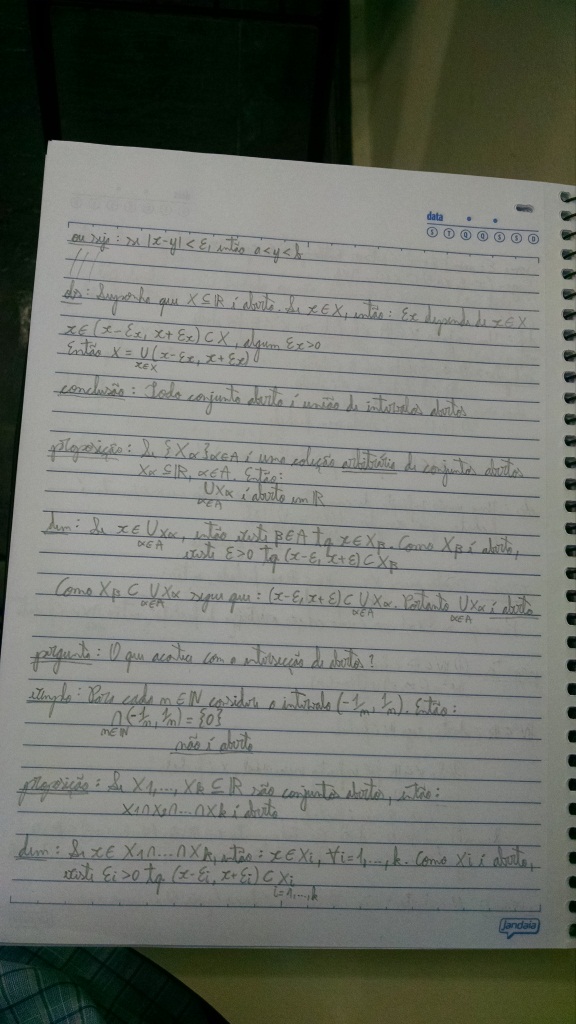 data
S T Q Q S S D
ou seja: se |x-y| < ε, então a<y<b
Suponha que X ⊆ ℝ é aberto. Se x∈X, então: εx depende de x∈X
x∈(x-εx, x+εx) ⊂ X, algum εx>0
Então X = ∪ (x-εx, x+εx)
x∈X
conclusão: Todo conjunto aberto é união de intervalos abertos
proposição: Se {Xα}α∈A é uma coleção arbitrária de conjuntos abertos
Xα ⊆ ℝ, α∈A. Então:
∪Xα é aberto em ℝ
α∈A
dem: Se x∈∪Xα, então existe β∈A tq x∈Xβ. Como Xβ é aberto,
α∈A
existe ε>0 tq (x-ε, x+ε) ⊂ Xβ
Como Xβ ⊂ ∪Xα segue que: (x-ε, x+ε) ⊂ ∪Xα. Portanto ∪Xα é aberto
α∈A α∈A α∈A
pergunta: O que acontece com a intersecção de abertos?
exemplo: Para cada m∈ℕ considere o intervalo (-1/m, 1/m). Então:
∩(-1/m, 1/m) = {0}
m∈ℕ
não é aberto
proposição: Se X1,..., Xk ⊆ ℝ são conjuntos abertos, então:
X1∩X2∩...∩Xk é aberto
dem: Se x∈ X1∩...∩Xk, então: x∈Xi, ∀i=1,..., k. Como Xi é aberto,
existe εi>0 tq (x-εi, x+εi) ⊂ Xi
i=1,..., k
jandaia